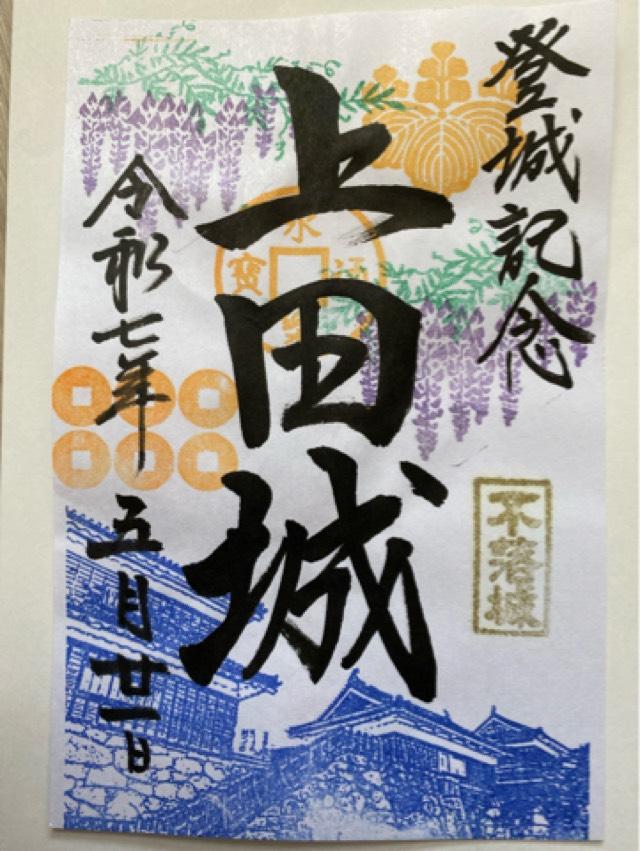 登城記念
上田城
令和七年五月廿一日
不落城